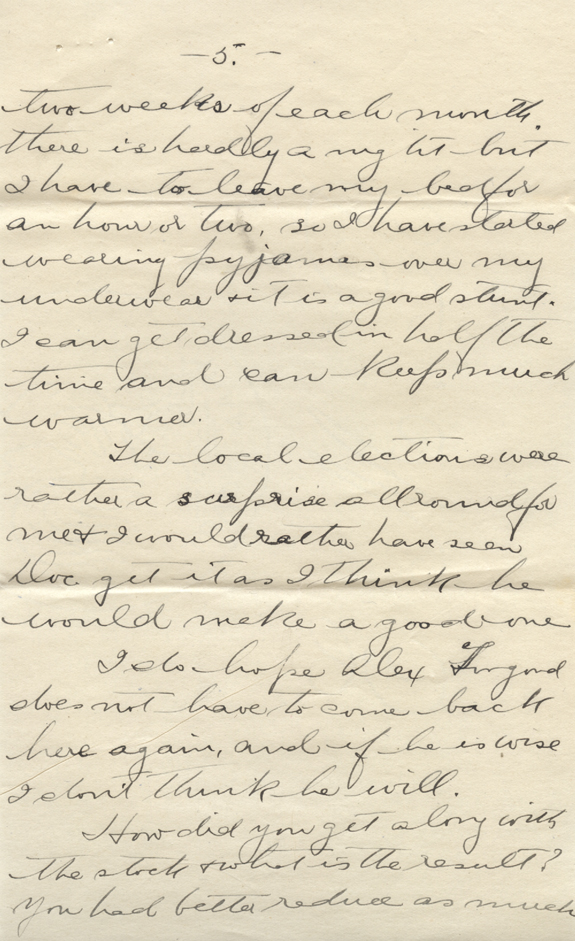 -5.-
two weeks of each month.
there is hardly a night but
I have to leave my bed for
an hour or two, so I have started
wearing pyjamas over my
underwear & it is a good stunt.
I can get dressed in half the
time and can keep much
warmer.
The local elections were
rather a surprise all round for
me & I would rather have seen
Doc get it as I think he
would make a good one
I do hope Alex
does not have to come back
here again, and if he is wise
I don't think he will.
How did you get along with
the stock & what is the result?
You had better reduce as much